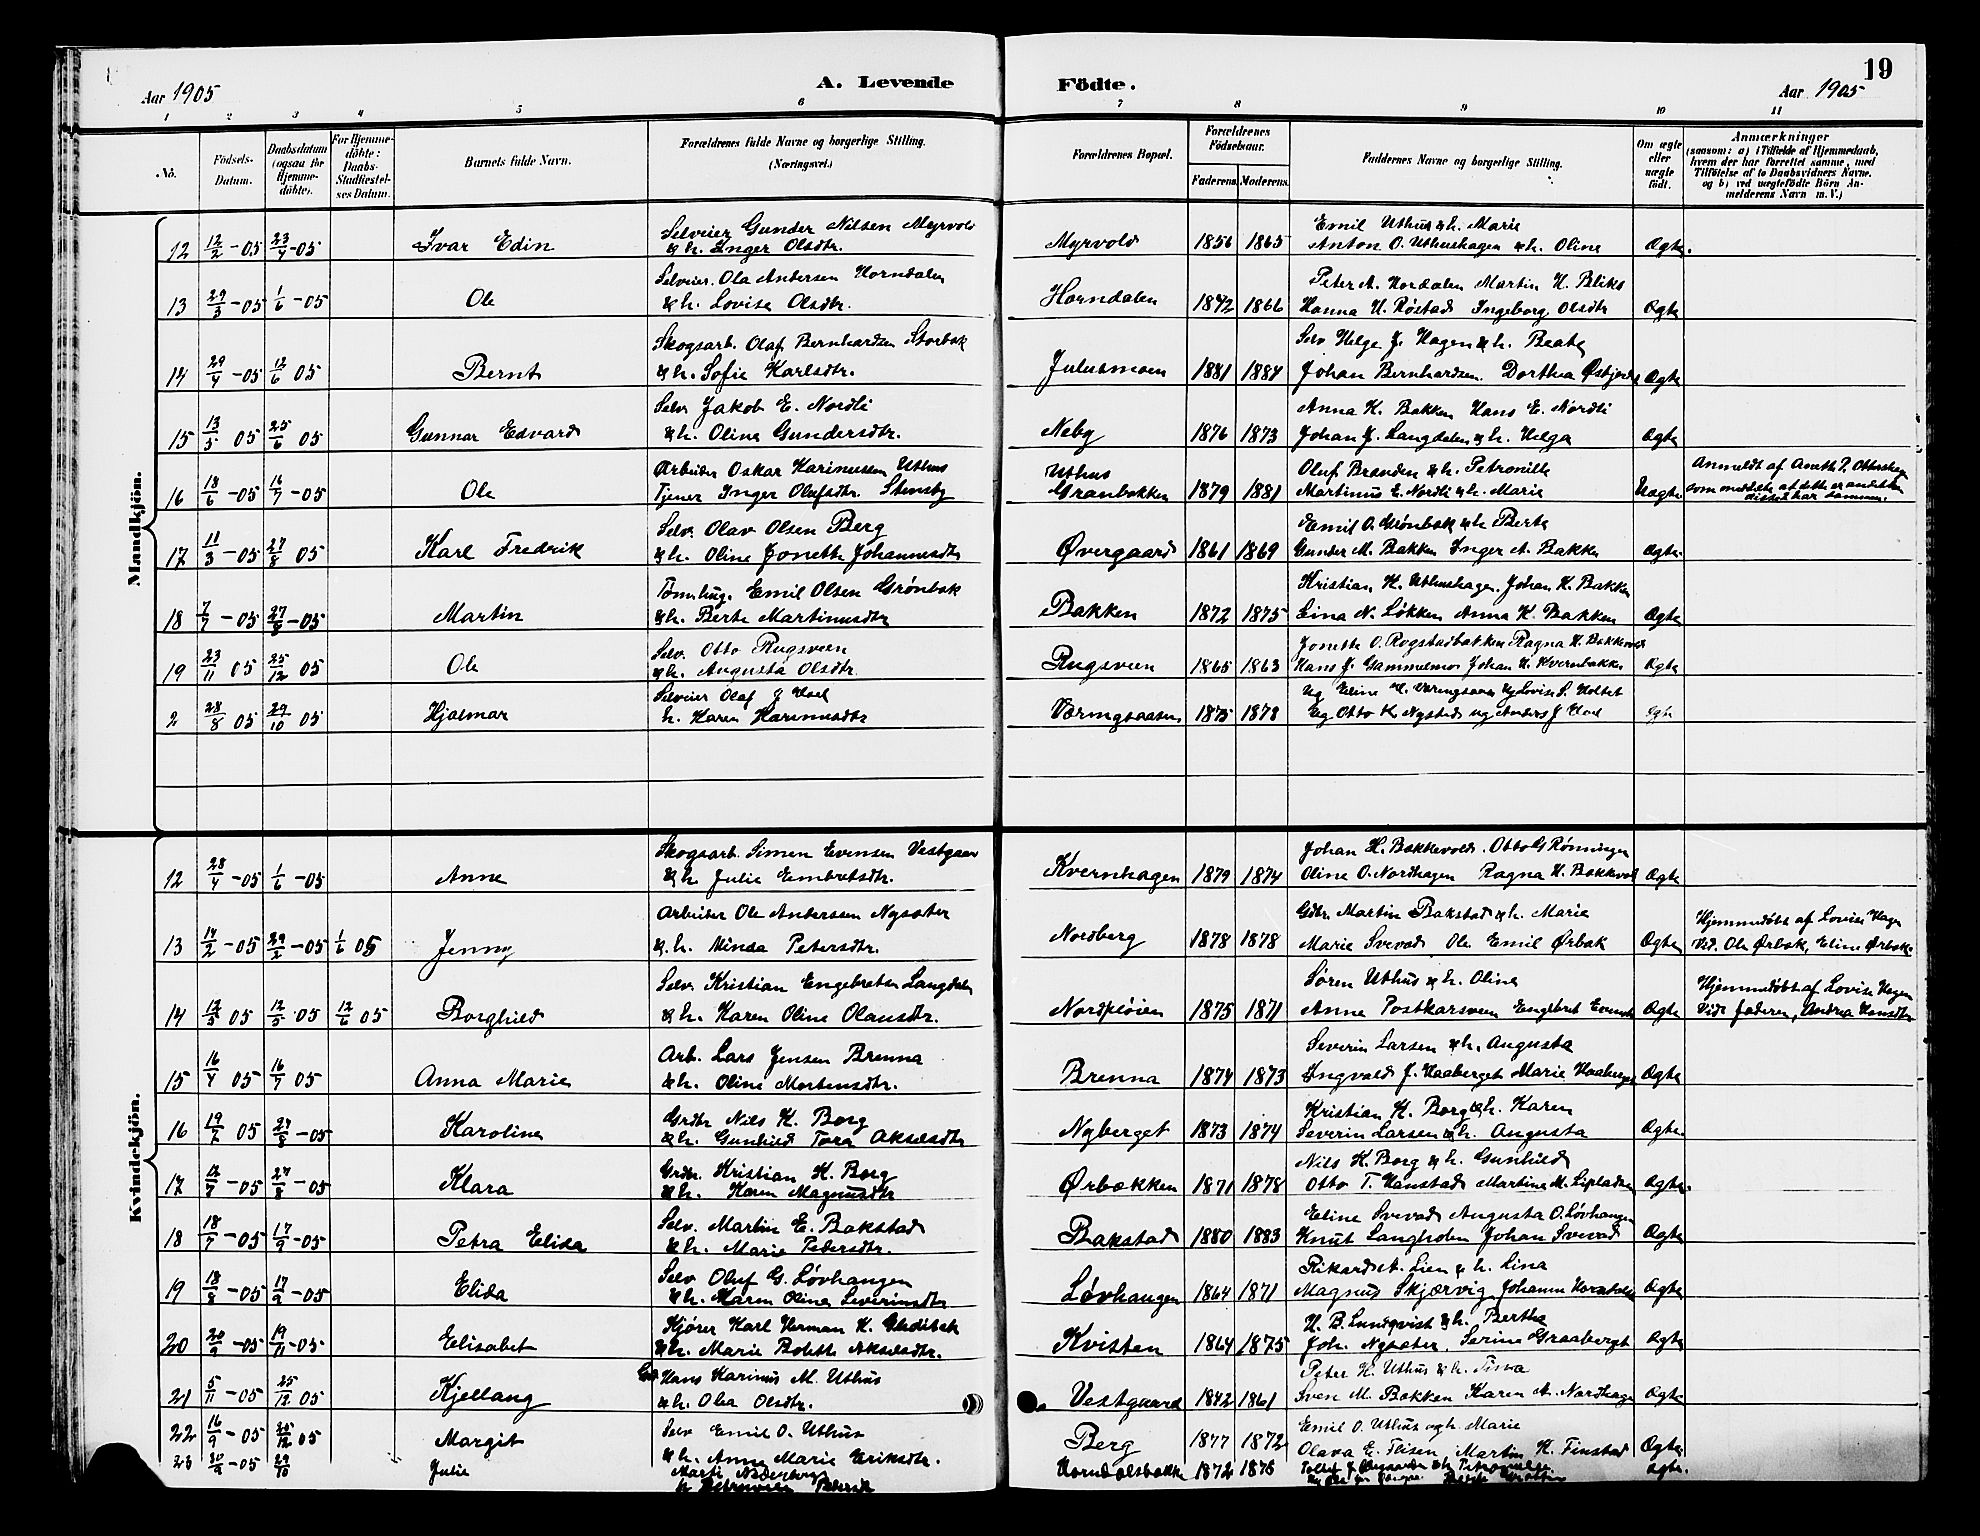 19
Aar 1905
A. Levende
Födte.
Aar 1905
1 2 3 4 5 6 7 8 9 10 11
No.
Födsels-Datum.
Daabsdatum (ogsaa for Hjemme-döbte).
For Hjemme-döbte: Daabs-Stadfæstel-ses Datum.
Barnets fulde Navn.
Forældrenes fulde Navne og borgerlige Stilling. (Næringsvei.)
Forældrenes Bopæl.
Forældrenes Födselsaar.
Faderens. Moderens.
Faddernes Navne og borgerlige Stilling.
Om ægte eller uægte födt.
Anmærkninger
(saasom: a) i Tilfælde af Hjemmedaab, hvem der har forrettet samme, med Tilföielse af to Daabsvidners Navne, og b) ved uægtefödte Börn An-melderens Navn m. V.)
Mandkjön.
Selveier Gunder Nilsen Myrvold Emil Uthus & h. Marie
12 12/2 -05 23/4 -05 Ivar Edin & h. Inger Olsdtr. Myrvold 1856 1865 Anton O. Uthushagen & h. Oline Ægte.
Selveier Ola Andersen Horndalen Peter A. Hordalen Martin H. Bliks
13 29/3 -05 1/6 -05 Ole & h. Lovise Olsdtr. Horndalen 1872 1866 Hanna H. Røstad Ingeborg Olsdtr Ægte
Skogsarb. Olaf Bernhardsen Storbæk Selv Helge J. Hagen & h. Beate
14 29/4 -05 12/6 05 Bernt & h. Sofie Karlsdtr. Julusmoen 1881 1884 Johan Bernhardsen. Dorthea Ægte
Selv. Jakob E. Nordli Anna K. Bakken Hans E. Nordli
15 13/5 05 25/6 05 Gunnar Edvard & h. Oline Gundersdtr. Neby 1876 1873 Johan J. Langdalen & h. Helga Ægte
Arbeider Oskar Karinussen Uthus Uthus Oluf Branden & h. Petronille Anmeldt af
16 18/6 -05 16/7 -05 Ole Tjener Inger Olafsdtr. Stensby Granbakken 1879 1881 Martinus E. Nordli & h. Marie Uægte
Selv. Olav Olsen Berg Emil O. Grønbæk & h. Berte
17 11/3 -05 27/8 05 Karl Fredrik & h. Oline Jonette Johannesdtr Øvergaard 1861 1869 Gunder M. Bakken Inger A. Bakken Ægte
Emil Olsen Grønbæk Kristian K. Uthushagen Johan K. Bakken
18 7/7 -05 27/8 -05 Martin & h. Berte Martinusdtr Bakken 1872 1875 Lina N. Løkken Anna K. Bakken Ægte
Selv. Otto Rugsveen Jonette O. Rogstadbakken Ragna H. Bakkevold
19 23/11 05 25/12 05 Ole & h. Augusta Olsdtr. Rugsveen 1865 1863 Hans J. Gammelmo Johan H. Kvernbakken Ægte
Selveier Olaf J Hoel
2 28/8 05 29/10 05 Hjalmar h. Karen Karinusdtr Væringsaasen 1875 1878 Ug Otto K. Nystad ug Anders J. Hoel Ægte
Kvindekjön.
Skogsarb. Simen Evensen Vestgaar Johan H. Bakkevold. Otto G Rønningen
12 28/4 -05 1/6 -05 Anne & h. Julie Embretsdtr. Kvernhagen 1879 1874 Oline O. Nordhagen Ragna H. Bakkevol Ægte
Arbeider Ole Anderssen Nysæter Gdbr. Martin Bakstad & h. Marie Hjemmedøbt af Lovise Hagen
13 14/2 -05 29/2 -05 1/6 05 Jenny & h. Minda Petersdtr. Nordberg 1878 1878 Marie Svevad Ole Emil Ørbæk Ægte Vid. Ole Ørbæk, Eline Ørbæk.
Selv. Kristian Engebretsen Langdalen Søren Uthus & h. Oline Hjemmedøbt af Lovise Hagen
14 12/5 05 12/5 05 12/6 05 Borghild & h. Karen Oline Olausdtr. Nordpløien 1875 1871 Anne Postkarsveen Engebret Ægte Vid. faderen, Andrea Hansdtr
Arb. Lars Jensen Brenna Severin Larsen & h. Augusta
15 16/4 05 16/7 05 Anna Marie & h. Oline Mortensdtr. Brenna 1874 1873 Ingvald J. Haaberget Marie Haaberget Ægte
Grdbr Nils K. Borg Kristian K. Borg & h. Karen
16 19/7 05 27/8 -05 Karoline & h. Gunhild Tora Akselsdtr Nyberget 1873 1874 Severin Larsen & h. Augusta Ægte.
Grdbr. Kristian K. Borg Nils K. Borg & h. Gunhild
17 12/7 -05 27/8 -05 Klara & h. Karen Magnusdtr Ørbækken 1871 1878 Otto T. Hanstad Martine M. Ægte.
Selv. Martin E. Bakstad Eline Svevad Augusta O. Løvhaugen
18 18/7 -05 17/9 -05 Petra Elida & h. Marie Pedersdtr. Bakstad 1880 1883 Knut Langholen Johan Svevad Ægte
Selv Oluf G. Løvhaugen Rikard A. Lien & h. Lina
19 18/8 -05 17/9 -05 Elida & h. Maren Oline Severinsdtr Løvhaugen 1864 1871 Magnus Skjærvig Johanne Ægte
Karl Herman K. H. B. Lundqvist & h. Berthe
20 20/9 -05 19/11 -05 Elisabet & h. Marie Bolette Akselsdtr. Kvisten 1864 1875 Joh. Nysæter. Serine Graaberget Ægte
Hans Karinus M. Uthus Peter K. Uthus & h. Tina
21 5/11 -05 25/12 05 Kjellaug & h. Olea Olsdtr. Vestgaard 1872 1861 Sven M. Bakken Karen A. Nordhagen Ægte
Selv Emil O. Uthus Emil O. Uthus og h. Marie
22 16/9 -05 25/12 05 Margit & h. Anne Marie Eriksdtr. Berg 1877 1872 Olava E. Flisen Martin K. Finstad Ægte
23 20/9 -05 29/10 Julie Horndalsbakke 1872 1876 Ægte.